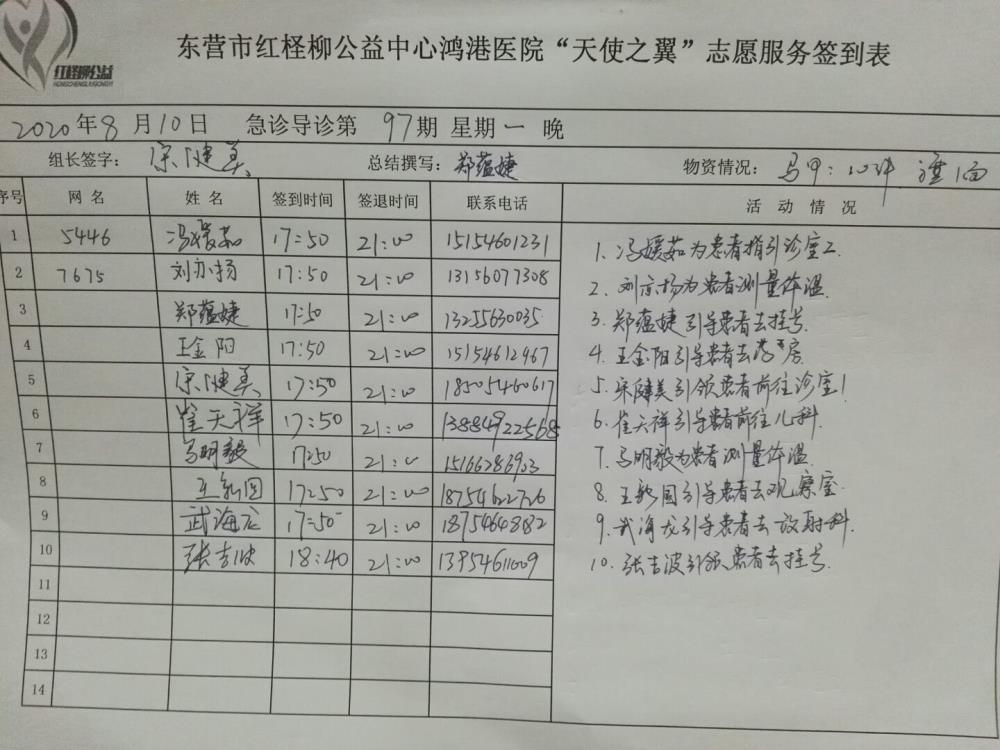 红柽柳公益
HONGCHENGLIUGONGYI
东营市红柽柳公益中心鸿港医院“天使之翼”志愿服务签到表
2020年8月10日 急诊导诊第 97期 星期一 晚
组长签字：宋健美 总结撰写：郑蕴婕 物资情况：马甲：10件
序号 网名 姓名 签到时间 签退时间 联系电话 活动情况
1 5446 冯媛茹 17:50 21:00 15154601231
2 7675 刘亦扬 17:50 21:00 13156077308
3 郑蕴婕 17:50 21:00 13255630035
4 王金阳 17:50 21:00 15154612967
5 宋健美 17:50 21:00 18505460617
6 崔天祥 17:50 21:00 13884922568
7 马明毅 17:50 21:00 15166286903
8 17:50 21:00 18754622726
9 武海龙 17:50 21:00 1875464882
10 张吉波 18:40 21:00 13954611009
11
12
13
14
1. 冯媛茹为患者指引诊室2.
2. 刘亦扬为患者测量体温.
3. 郑蕴婕引导患者去挂号.
4. 王金阳引导患者去药房.
5. 宋健美引领患者前往诊室1
6. 崔天祥引导患者前往儿科.
7. 马明毅为患者测量体温.
8. 引导患者去观察室.
9. 武海龙引导患者去放射科.
10. 张吉波引领患者去挂号.